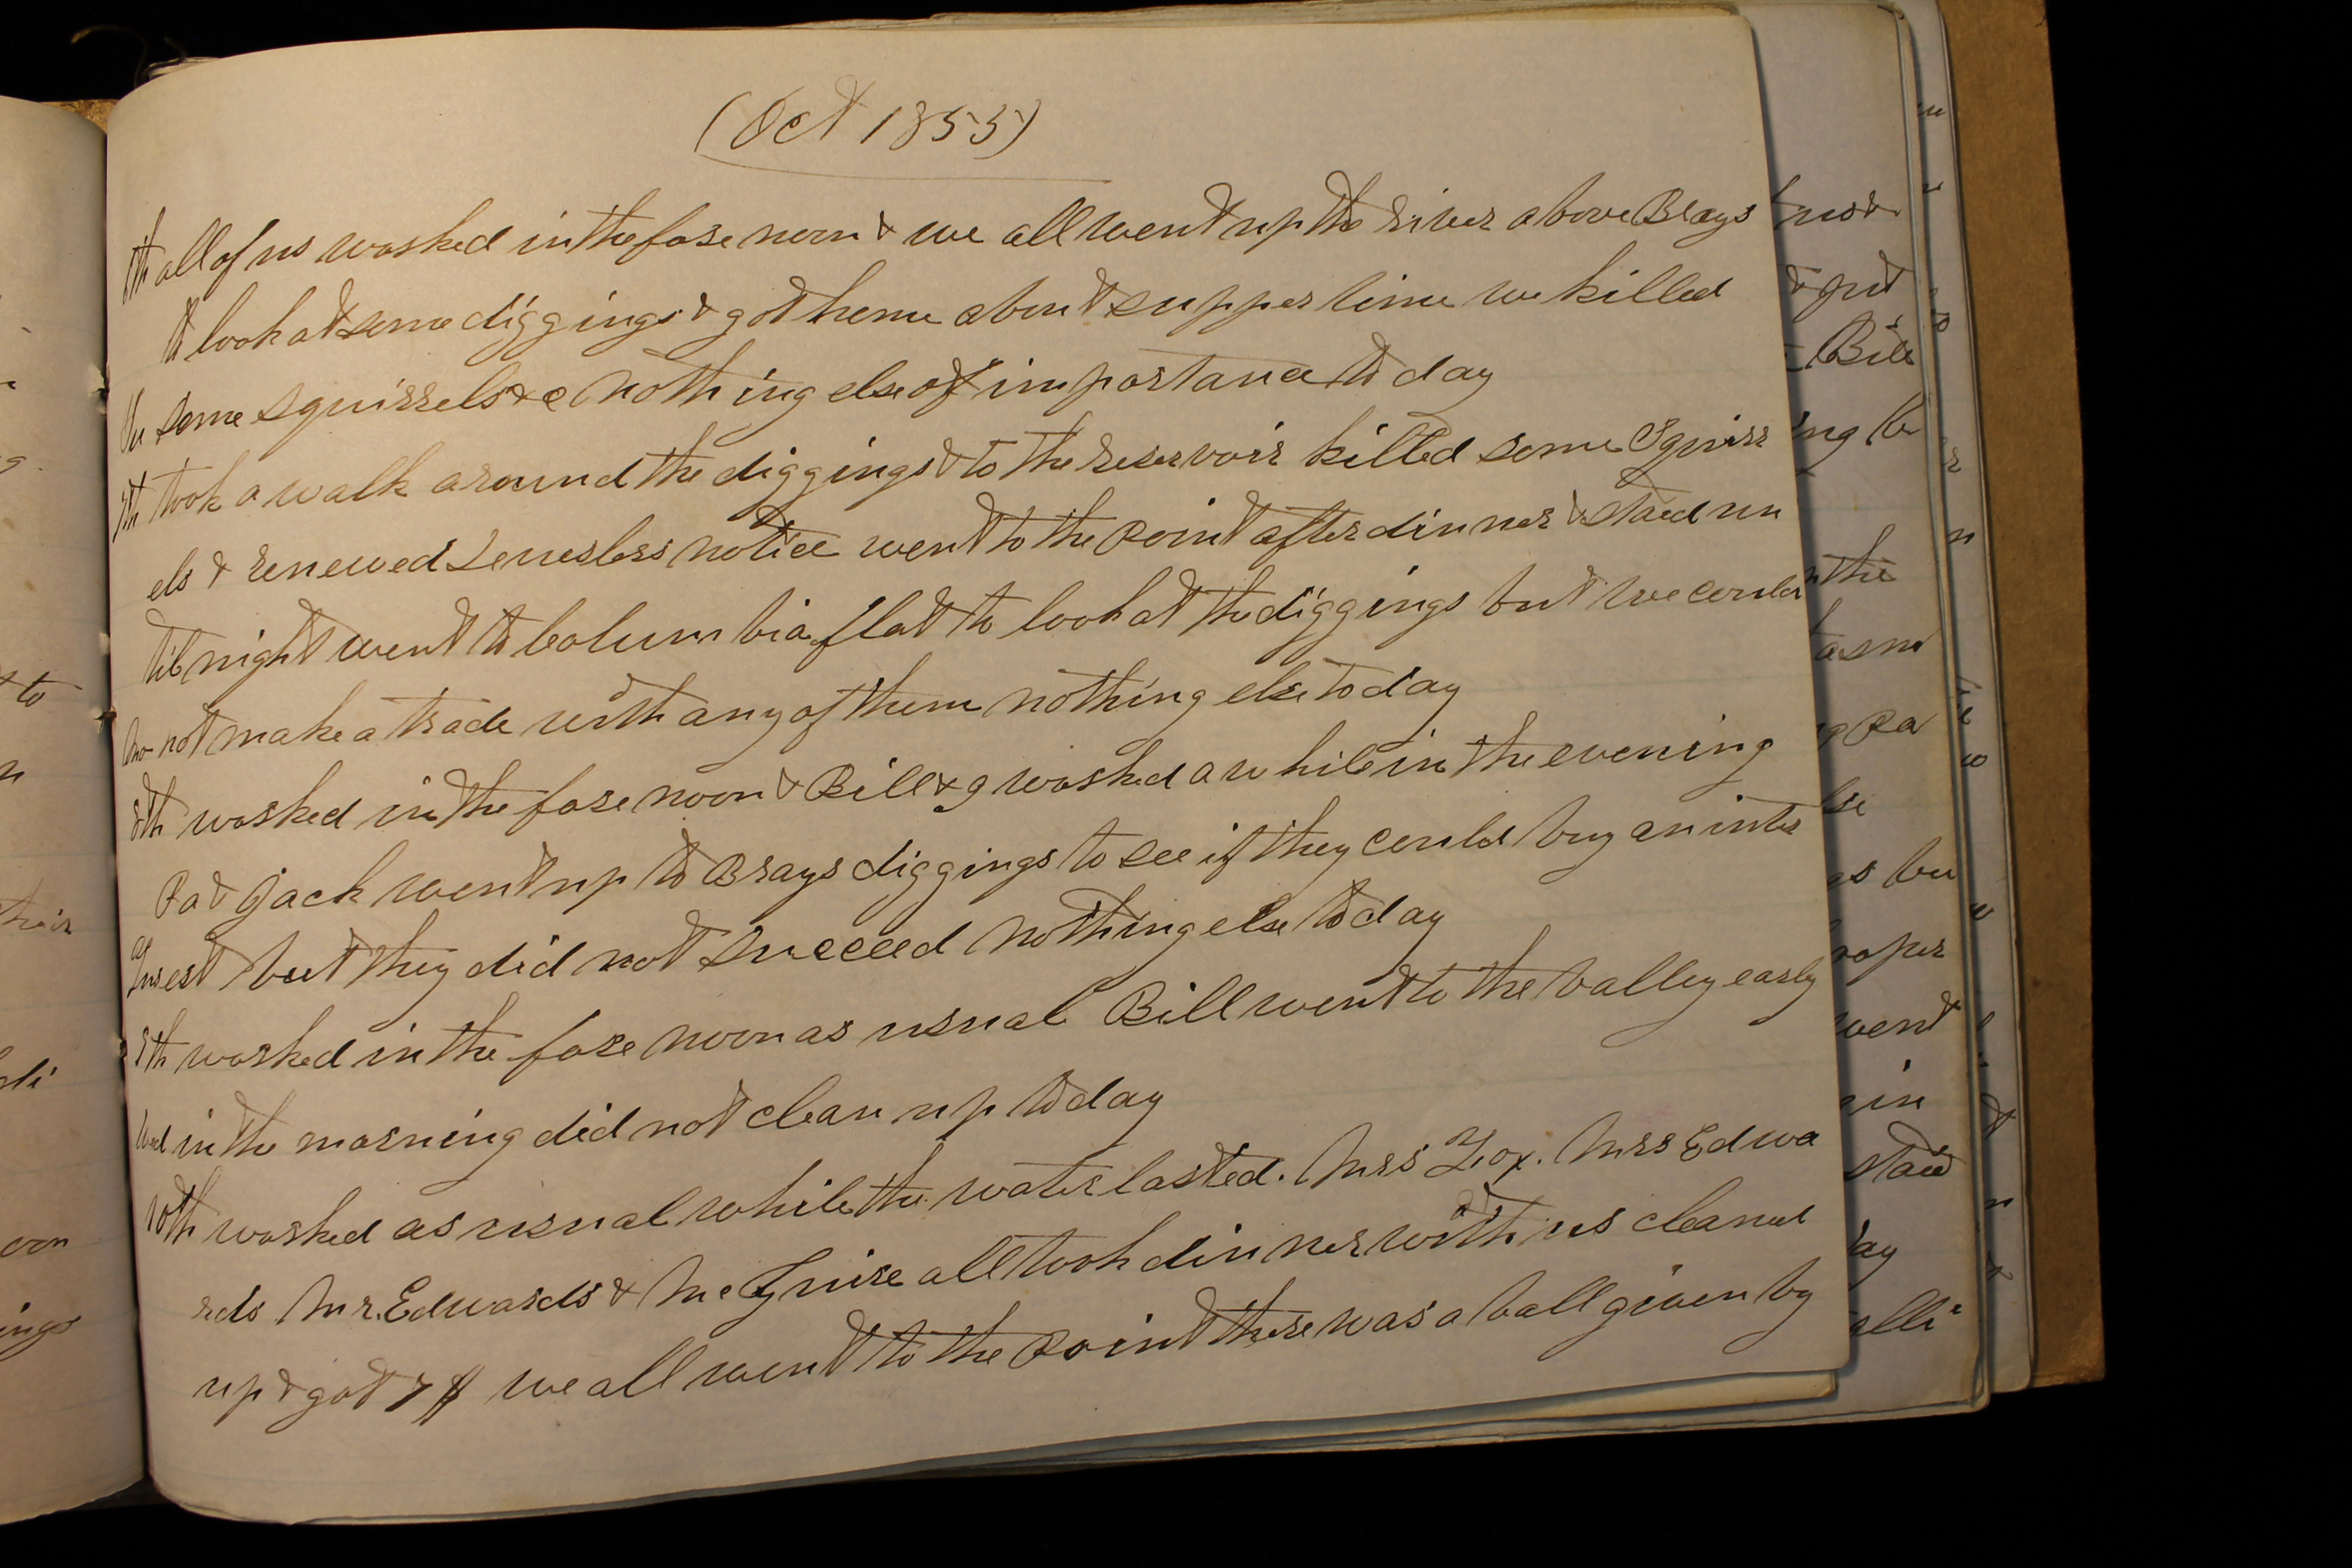 (Oct 1855)
6th all of us washed in the fore noon & we all went up the river above Brays
to look at some diggings & got home about supper time we killed
Su some squirrels &c nothing else of importance to day
7th took a walk around the diggings & to the reservoir killed some Squirr
els & renewed notice went to the Point after dinner & staid un
til night went to Columbia flat to look at the diggings but we could
Mo not make a trade with any of them nothing else to day
8th washed in the fore noon & Bill & I washed a while in the evening
Pa & Jack went up to Brays diggings to see if they could buy an inter
Tu est but they did not succeed nothing else to day
9th washed in the fore noon as usual Bill went to the valley early
Wed in the morning did not clean up to day
10th washed as usual while the water lasted. Mrs Fox. Mrs Edwa
rds Mr. Edwards & McGuire all took dinner with us cleaned
up & got 7 $ we all went to the Point there was a ball given by